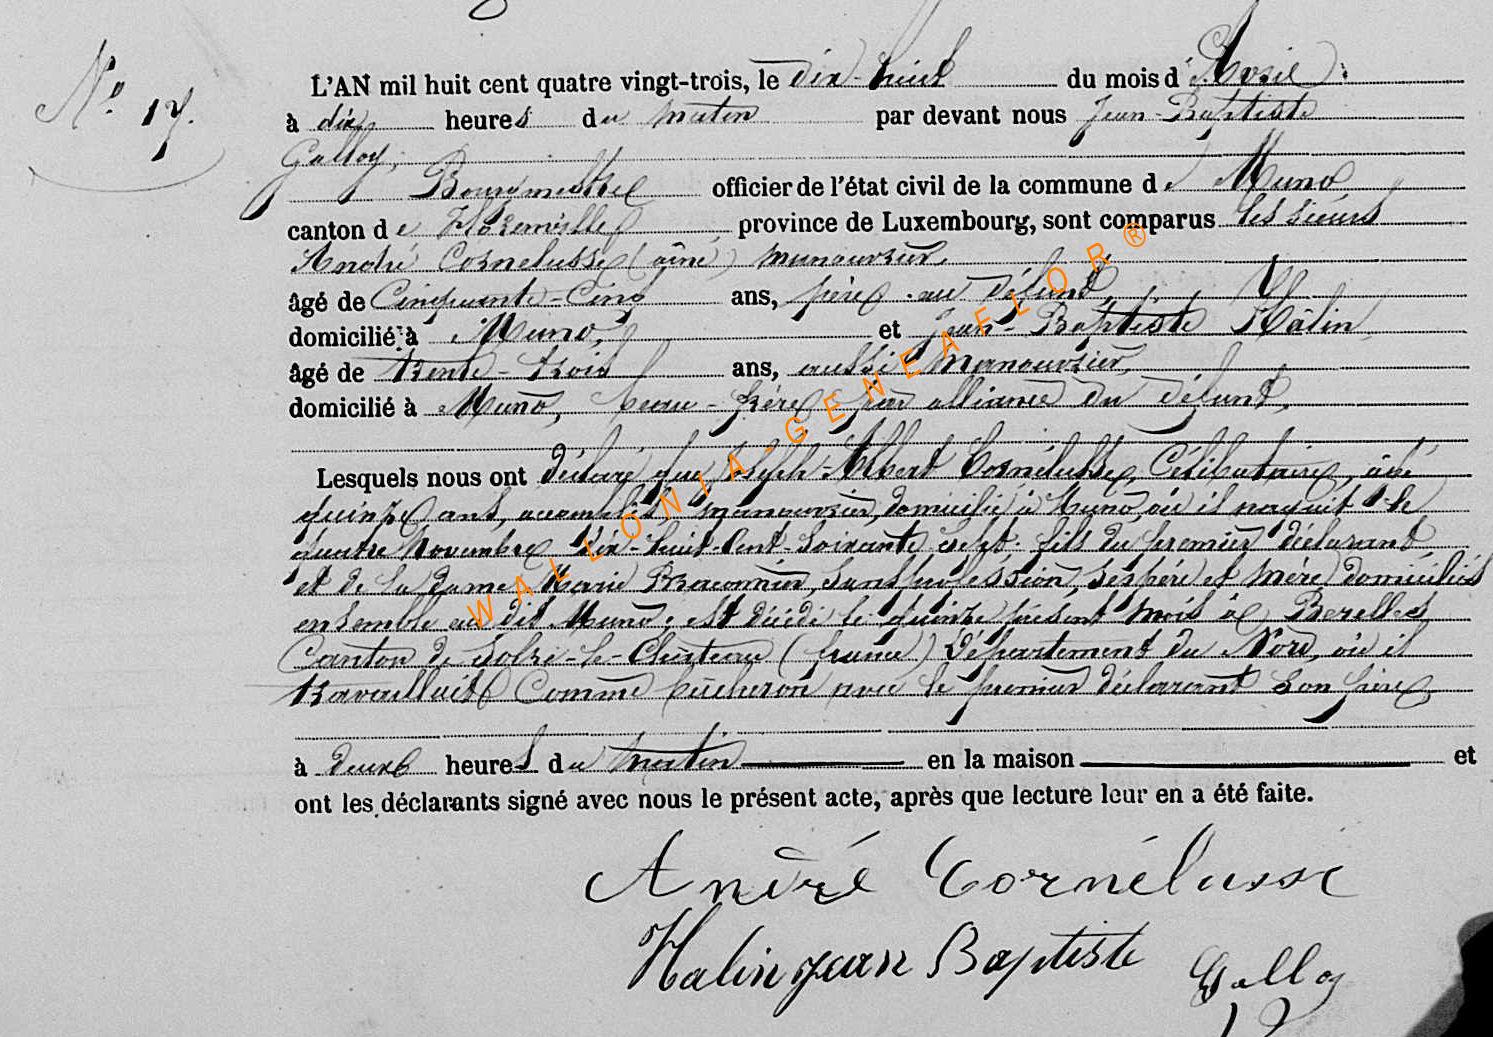 N° 17.
L'AN mil huit cent quatre vingt-trois, le dix-huit du mois d'Avril
à dix heures du matin par devant nous Jean-Baptiste
Galloy,
Bourgmestre officier de l'état civil de la commune de Muno
canton de Florenville province de Luxembourg, sont comparus les sieurs
André Cornelusse (aîné) manouvrier,
âgé de Cinquante-Cinq ans, père au défunt,
domicilié à Muno, et Jean-Baptiste Halin,
âgé de trente-trois ans, aussi manouvrier,
domicilié à Muno, beau-frère par alliance du défunt,
Lesquels nous ont déclaré que Joseph-Albert Cornélusse, Célibataire, âgé
quinze ans, accomplis, manouvrier, domicilié à Muno, où il naquit le
quatre Novembre dix-huit-Cent-Soixante sept. fils du premier déclarant
et de la dame Marie Braconnier, sans profession, ses père et mère, domiciliés
ensemble au dit Muno; est décédé le quinze présent mois à
Canton de Solre-le-Château (france) Département du Nord, où il
travaillait Comme bûcheron avec le premier déclarant son père
à deux heures du matin en la maison et
ont les déclarants signé avec nous le présent acte, après que lecture leur en a été faite.
André Cornélusse
Halin jean Baptiste
Galloy
WALLONIA-GENEAFLOR®